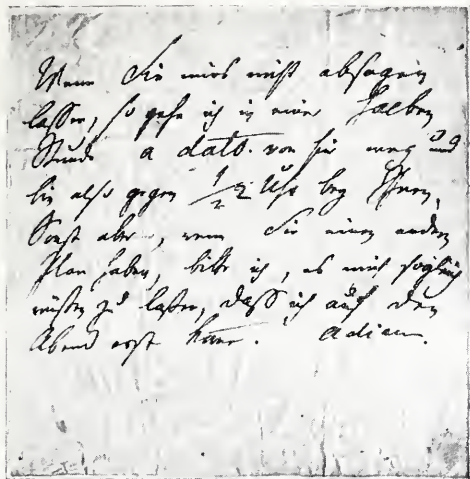 Wenn Sie mirs nicht absagen
lassen, so gehe ich in einer halben
Stunde a dato von hier weg und
bin also gegen 1/2 2 Uhr bey Ihnen,
Sonst aber, wenn Sie einen andern
Plan haben, bitte ich, es mich sogleich
wissen zu lassen, daß ich auch den
Abend erst kann. Adieu.